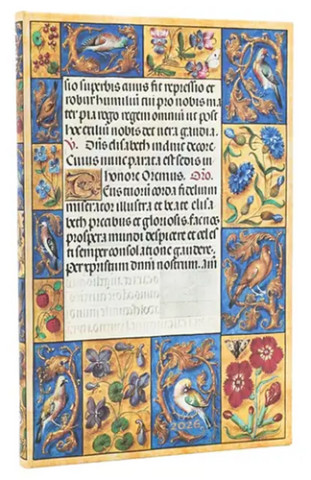 sio superbis cuius fit repressio et
robur humiliū tui pro nobis ma
ter pia rego regem omniū ut post
exiliū nobis det vera gaudia.
V. Dn̄s elisabeth induit decore.
Cuius nunc parata est sedis in
honore Oremus. Oro.
corda fidelium
miserator illustra et beate elisa
beth precibus et gloriosis. fac nos
prospera mundi despicere et celes
ti semper consolatione gaudere.
per dn̄m nostrum. am̄
2026